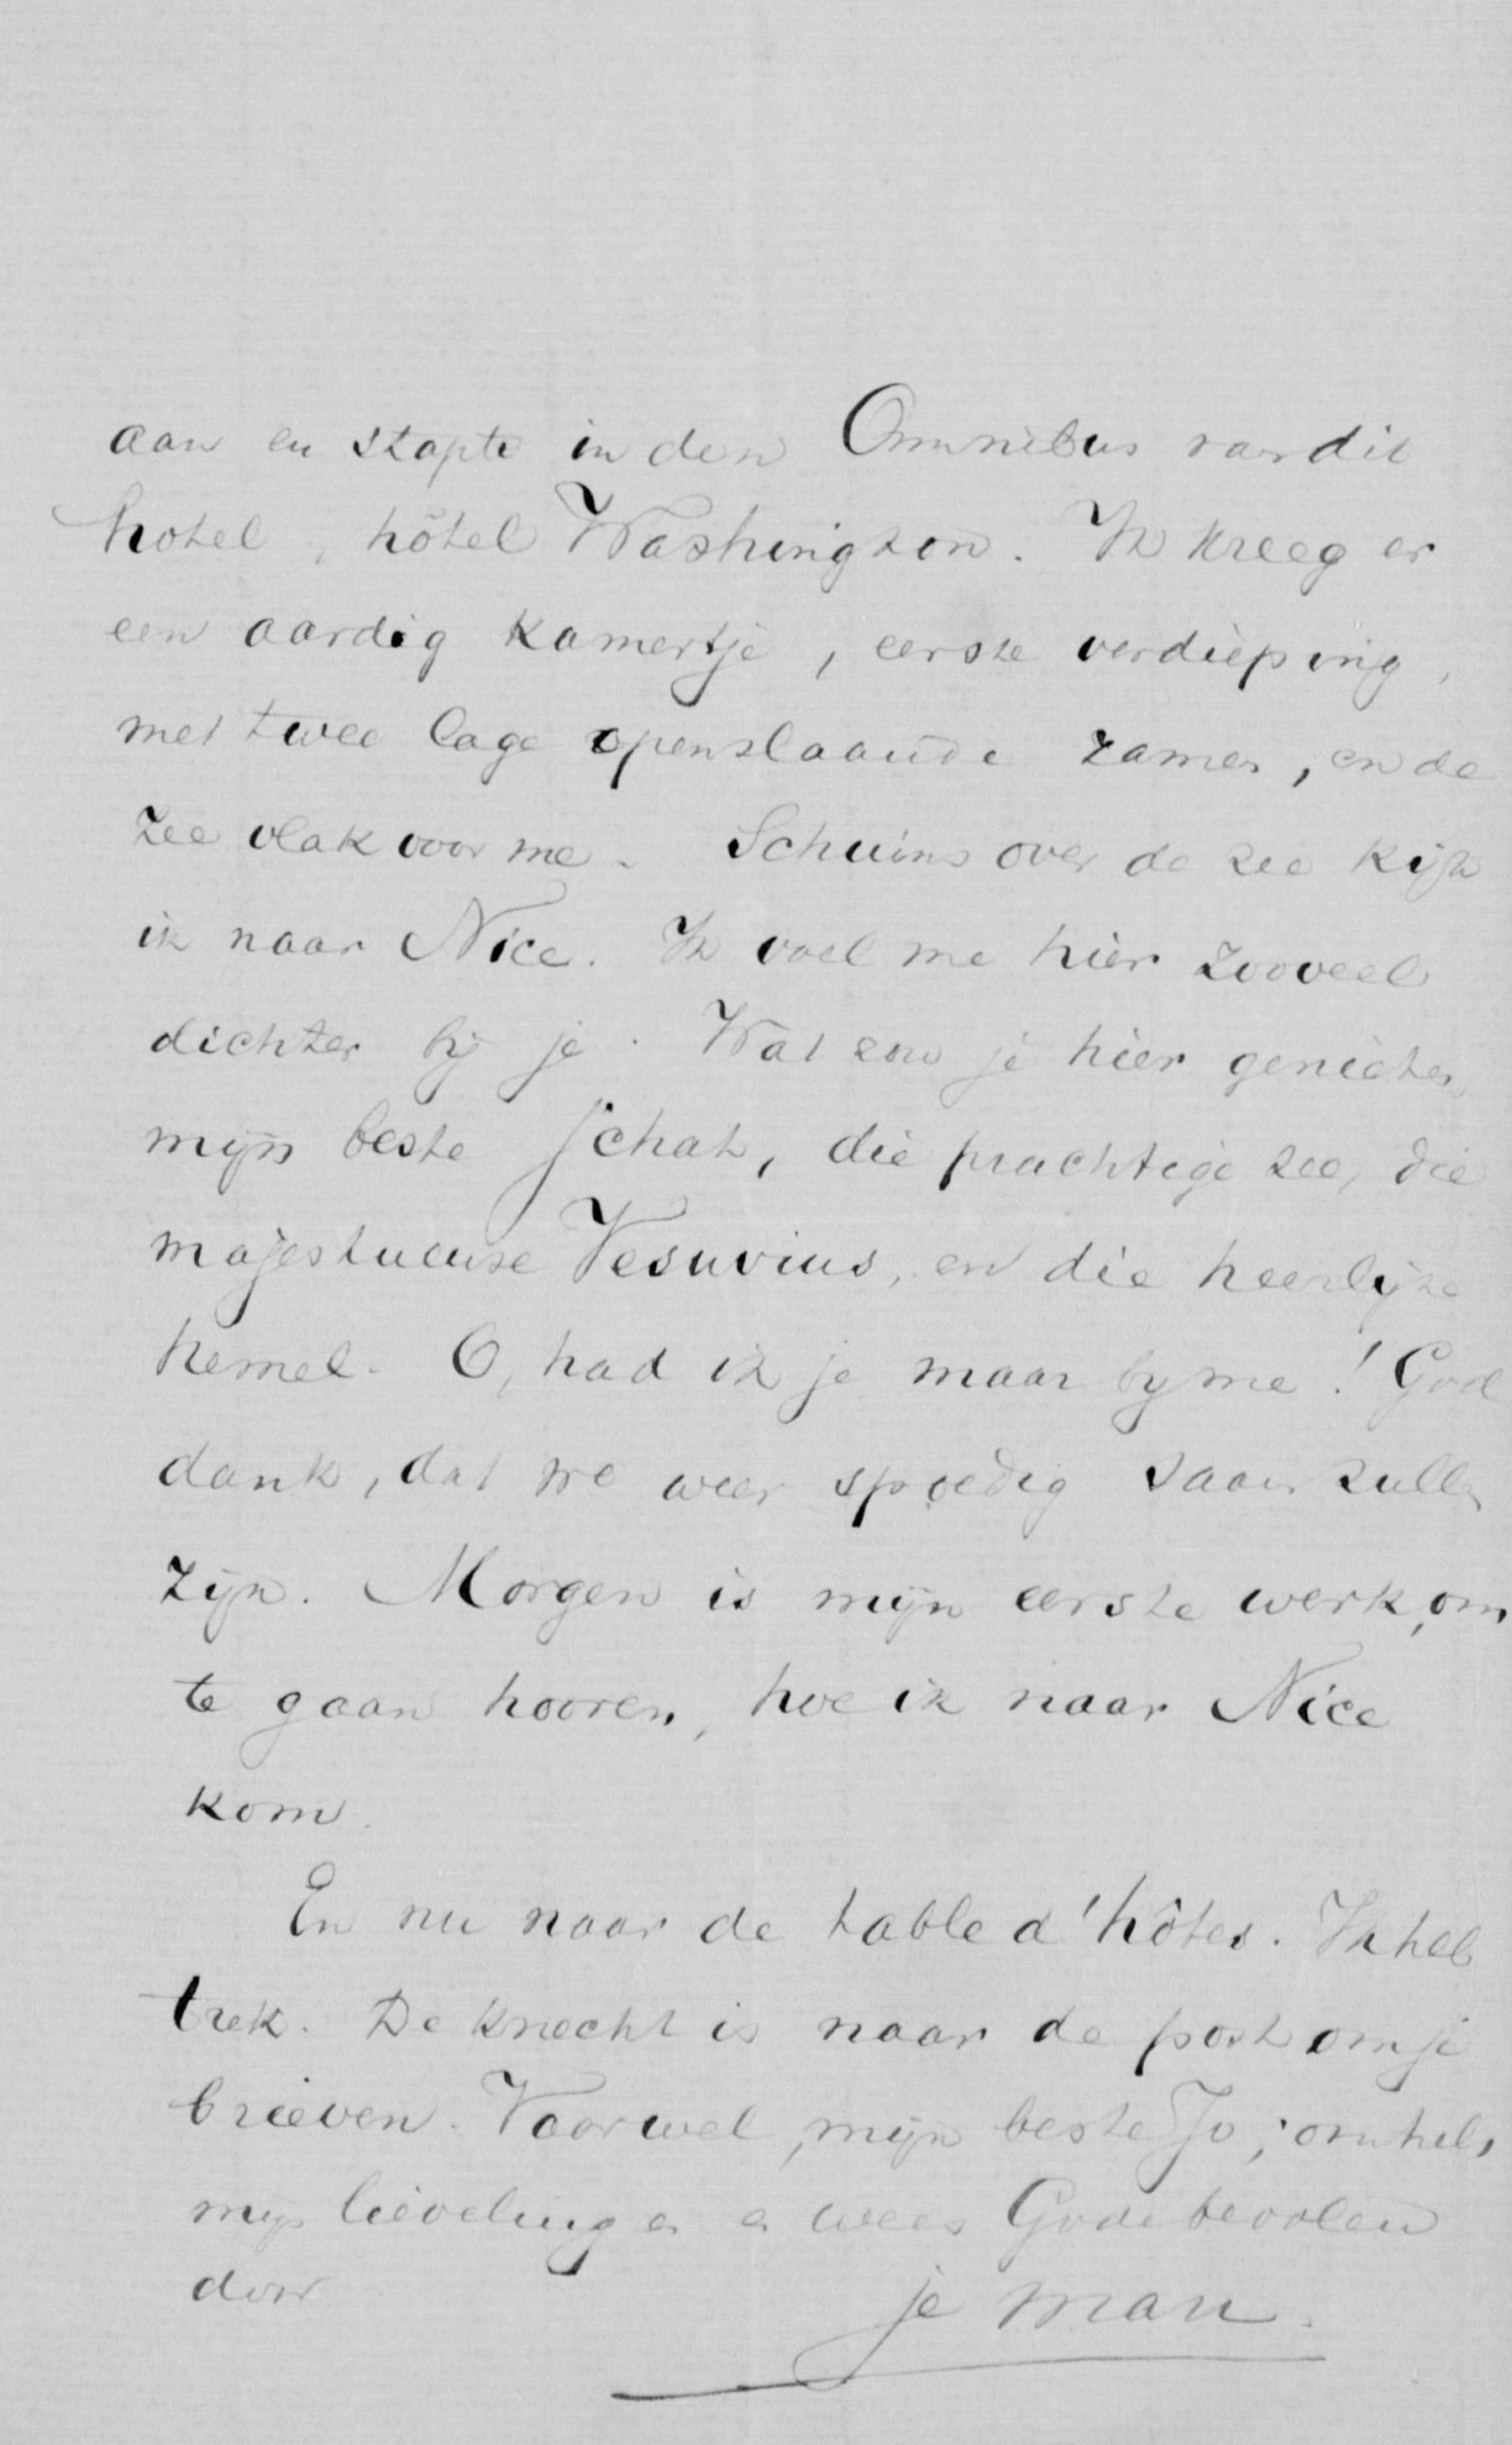 aan en stapte in den Omnibus van dit
hotel, hôtel Washington. Ik kreeg er
een aardig kamertje, eerste verdieping,
met twee lage openslaande ramen, en de
zee vlak voor me. Schuins over de zee kijk
ik naar Nice. Ik voel me hier zooveel
dichter bij je. Wat zou je hier genieten,
mijn beste schat, die prachtige zee, die
majestueuse Vesuvius, en die heerlijke
hemel. O, had ik je maar bij me! God
dank, dat we weer spoedig saam zullen
zijn. Morgen is mijn eerste werk, om
te gaan hooren, hoe ik naar Nice
kom.
En nu naar de table d'hôtes. Ik heb
trek. De knecht is naar de post om je
brieven. Vaarwel, mijn beste Jo; omhels
mijn lievelingen en wees Gode bevolen
door
je man.